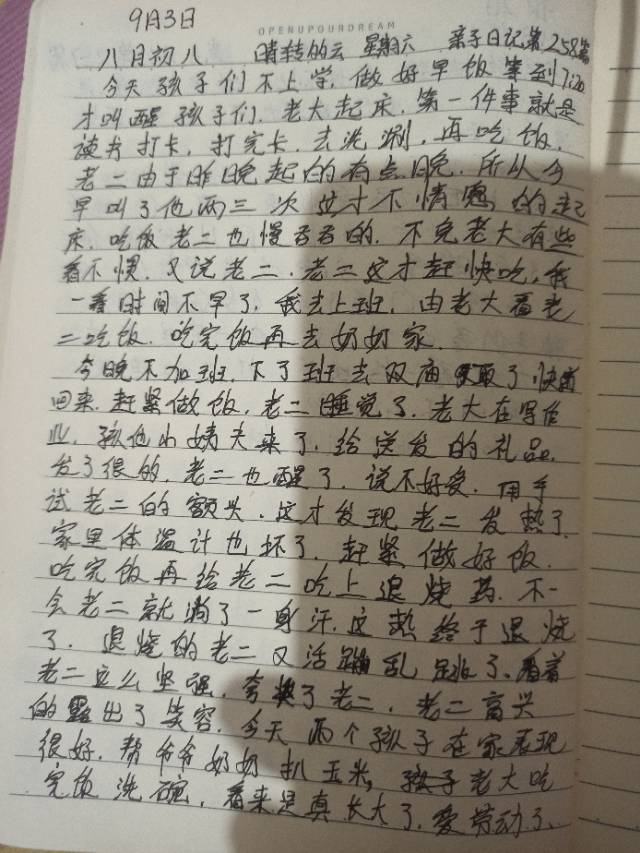 9月3日
OPENUPOURDREAM
八月初八 晴转的云 星期六 亲子日记第258篇
今天孩子们不上学,做好早饭等到7:20
才叫醒孩子们.老大起床,第一件事就是
读书打卡,打完卡.去洗涮,再吃饭,
老二由于昨晚起的有点晚.所从今
早叫了他两三次这才不情愿的起
床.吃饭老二也慢吞吞的.不免老大有些
看不惯.又说老二.老二这才赶快吃,我
一看时间不早了,我去上班.由老大看老
二吃饭.吃完饭再去奶奶家.
今晚不加班.下了班去双庙取了快递
回来.赶紧做饭,老二睡觉了.老大在写作
业.孩他小姨夫来了.给送发的礼品.
发了很的,老二也醒了.说不好受.用手
试老二的额头.这才发现老二发热了.
家里体温计也坏了.赶紧做好饭.
吃完饭再给老二吃上退烧药.不一
会老二就淌了一身汗.这热终于退烧
了.退烧的老二又活蹦乱跳了.看着
老二这么坚强.夸了老二.老二高兴
的露出了笑容.今天两个孩子在家表现
很好.帮爷爷奶奶扒玉米,孩子老大吃
完饭洗碗,看来是真长大了.爱劳动了.